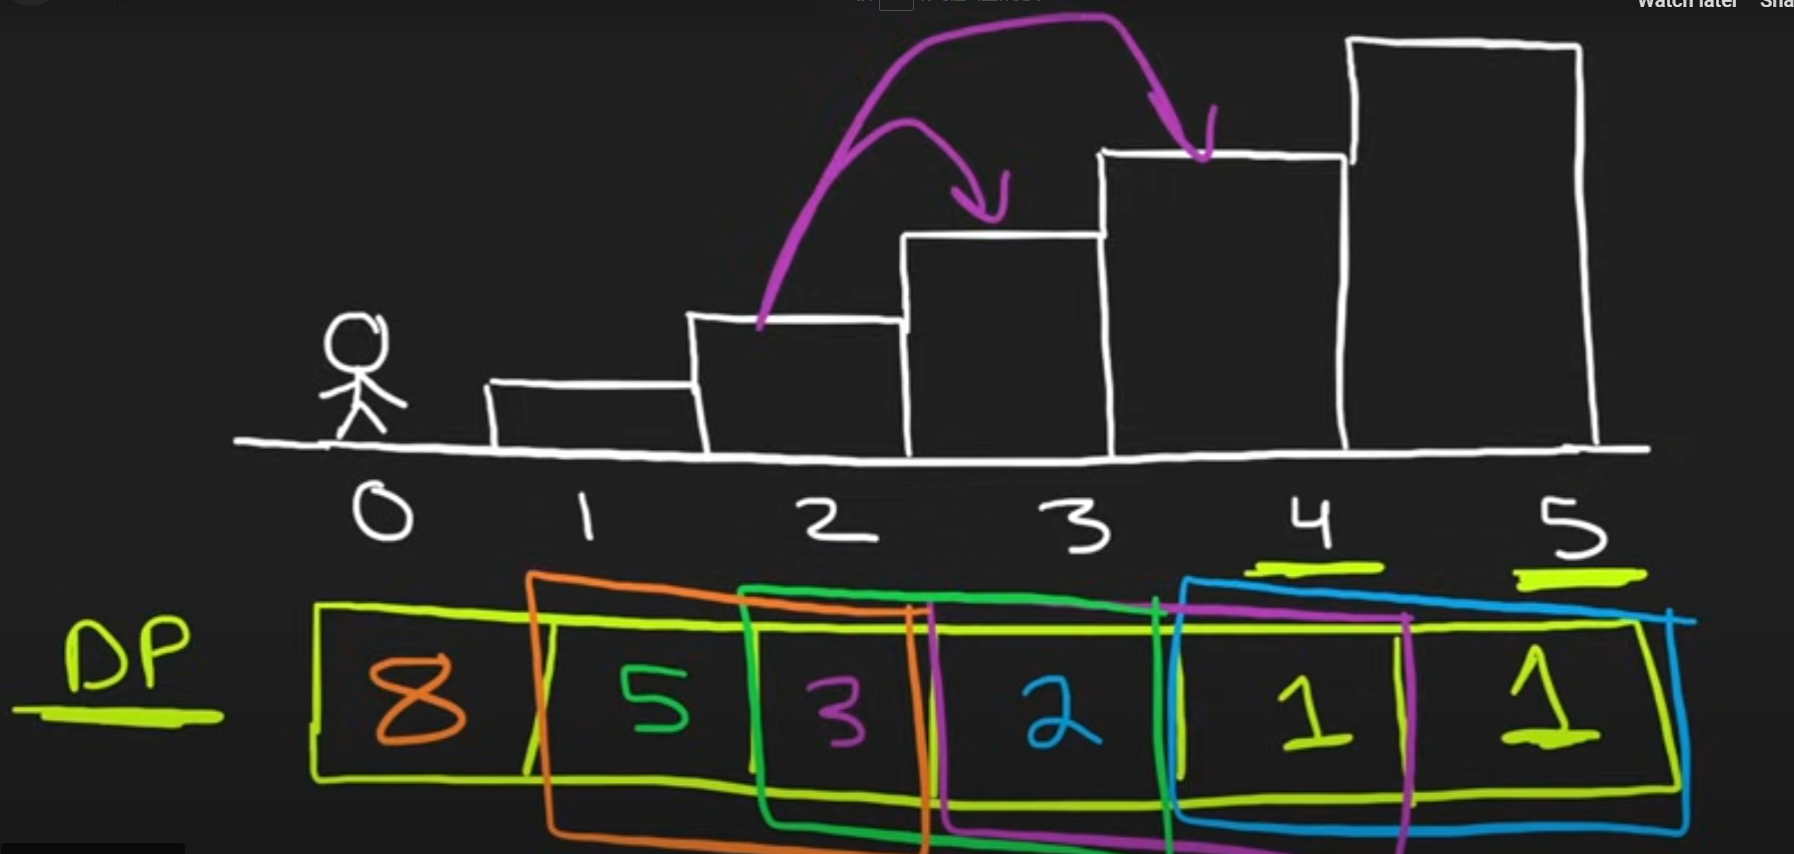 Watch later
0 1 2 3 4 5
DP 8 5 3 2 1 1